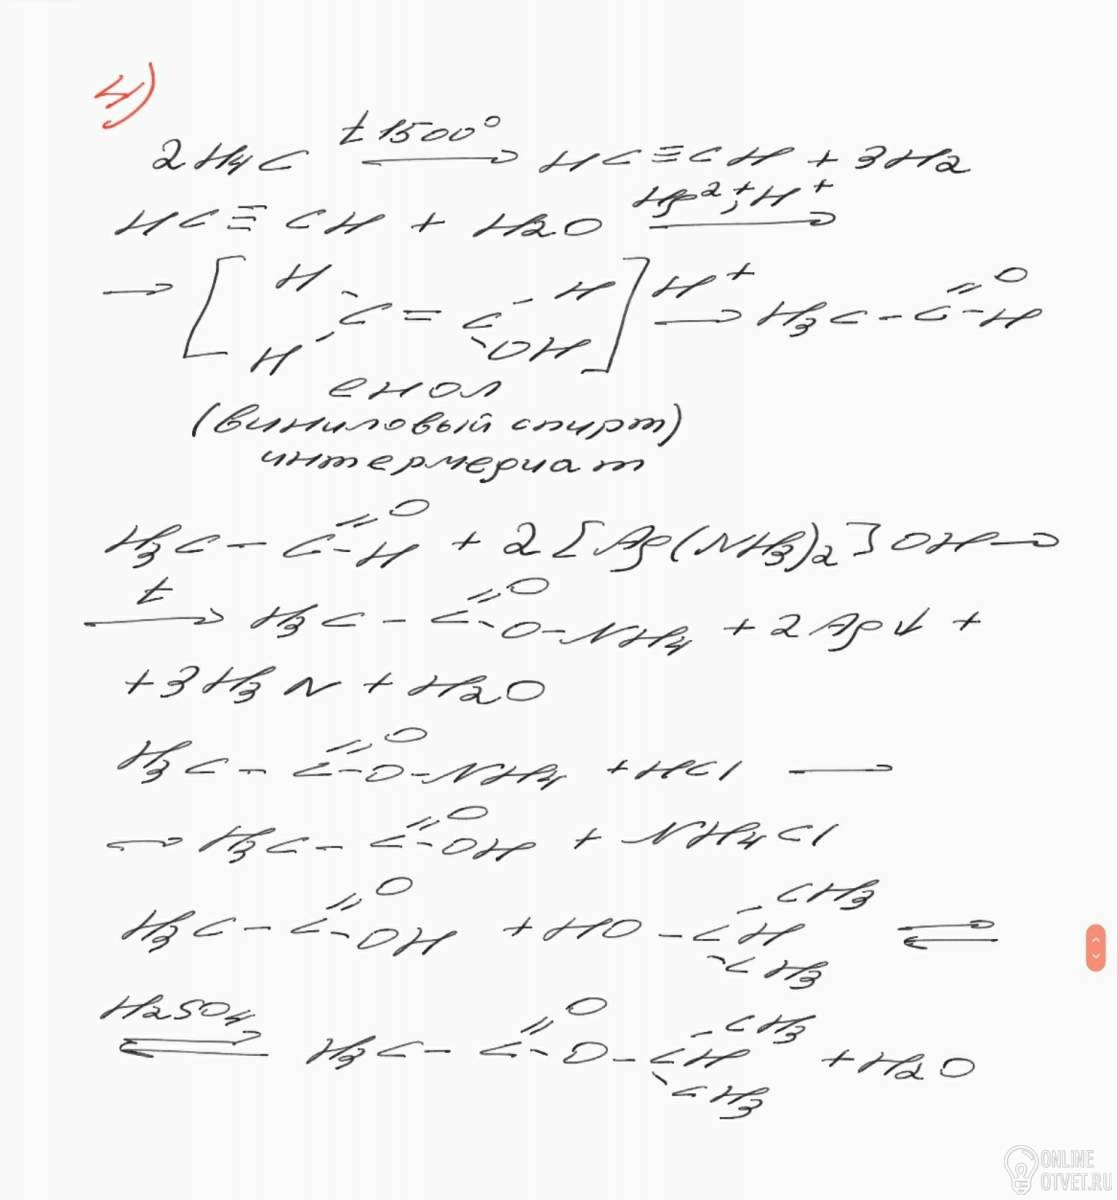 4)
2H4C t 1500° → HC≡CH + 3H2
HC≡CH + H2O Hg2+, H+ →
→ [H H C = C H OH] H+ → H3C - C =O - H
енол
(виниловый спирт)
интермедиат
H3C - C =O - H + 2[Ag(NH3)2]OH →
t → H3C - C =O - O - NH4 + 2Ag↓ +
+ 3H3N + H2O
H3C - C =O - O - NH4 + HCl →
→ H3C - C =O - OH + NH4Cl
H3C - C =O - OH + HO - CH - CH3 - CH3 ⇌
H2SO4 ⇌ H3C - C =O - O - CH - CH3 - CH3 + H2O
ONLINE
OTVET.RU